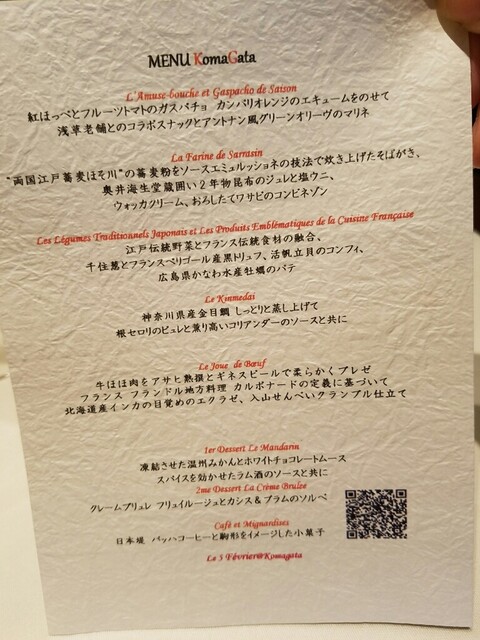 MENU KomaGata
L'Amuse-bouche et Gaspacho de Saison
紅ほっぺとフルーツトマトのガスパチョ カンパリオレンジのエキュームをのせて
浅草老舗とのコラボスナックとアントナン風グリーンオリーヴのマリネ
La Farine de Sarrasin
"両国江戸蕎麦ほそ川"の蕎麦粉をソースエミュルッショネの技法で炊き上げたそばがき、
奥井海生堂蔵囲い2年物昆布のジュレと塩ウニ、
ウォッカクリーム、おろしたてワサビのコンビネゾン
Les Légumes Traditionnels Japonais et Les Produits Emblématiques de la Cuisine Française
江戸伝統野菜とフランス伝統食材の融合、
千住葱とフランスペリゴール産黒トリュフ、活帆立貝のコンフィ、
広島県かなわ水産牡蠣のパテ
Le Kinmedai
神奈川県産金目鯛 しっとりと蒸し上げて
根セロリのピュレと薫り高いコリアンダーのソースと共に
Le Joue de Bœuf
牛ほほ肉をアサヒ熟撰とギネスビールで柔らかくブレゼ
フランス フランドル地方料理 カルボナードの定義に基づいて
北海道産インカの目覚めのエクラゼ、入山せんべいクランブル仕立て
1er Dessert Le Mandarin
凍結させた温州みかんとホワイトチョコレートムース
スパイスを効かせたラム酒のソースと共に
2me Dessert La Crème Brulée
クレームブリュレ フリュイルージュとカシス&プラムのソルベ
Café et Mignardises
日本堤 バッハコーヒーと駒形をイメージした小菓子
Le 5 Février@Komagata